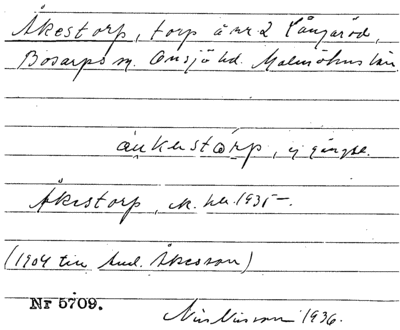 Åkestorp, torp å nr 2 Långaröd,
Bosarps sn. Onsjö hd. Malmöhus län.
åukastårp, ej gängse.
Åkestorp, 1935–.
(1904 till And. Åkesson)
Nr 5709.
Nils Nilsson 1936.